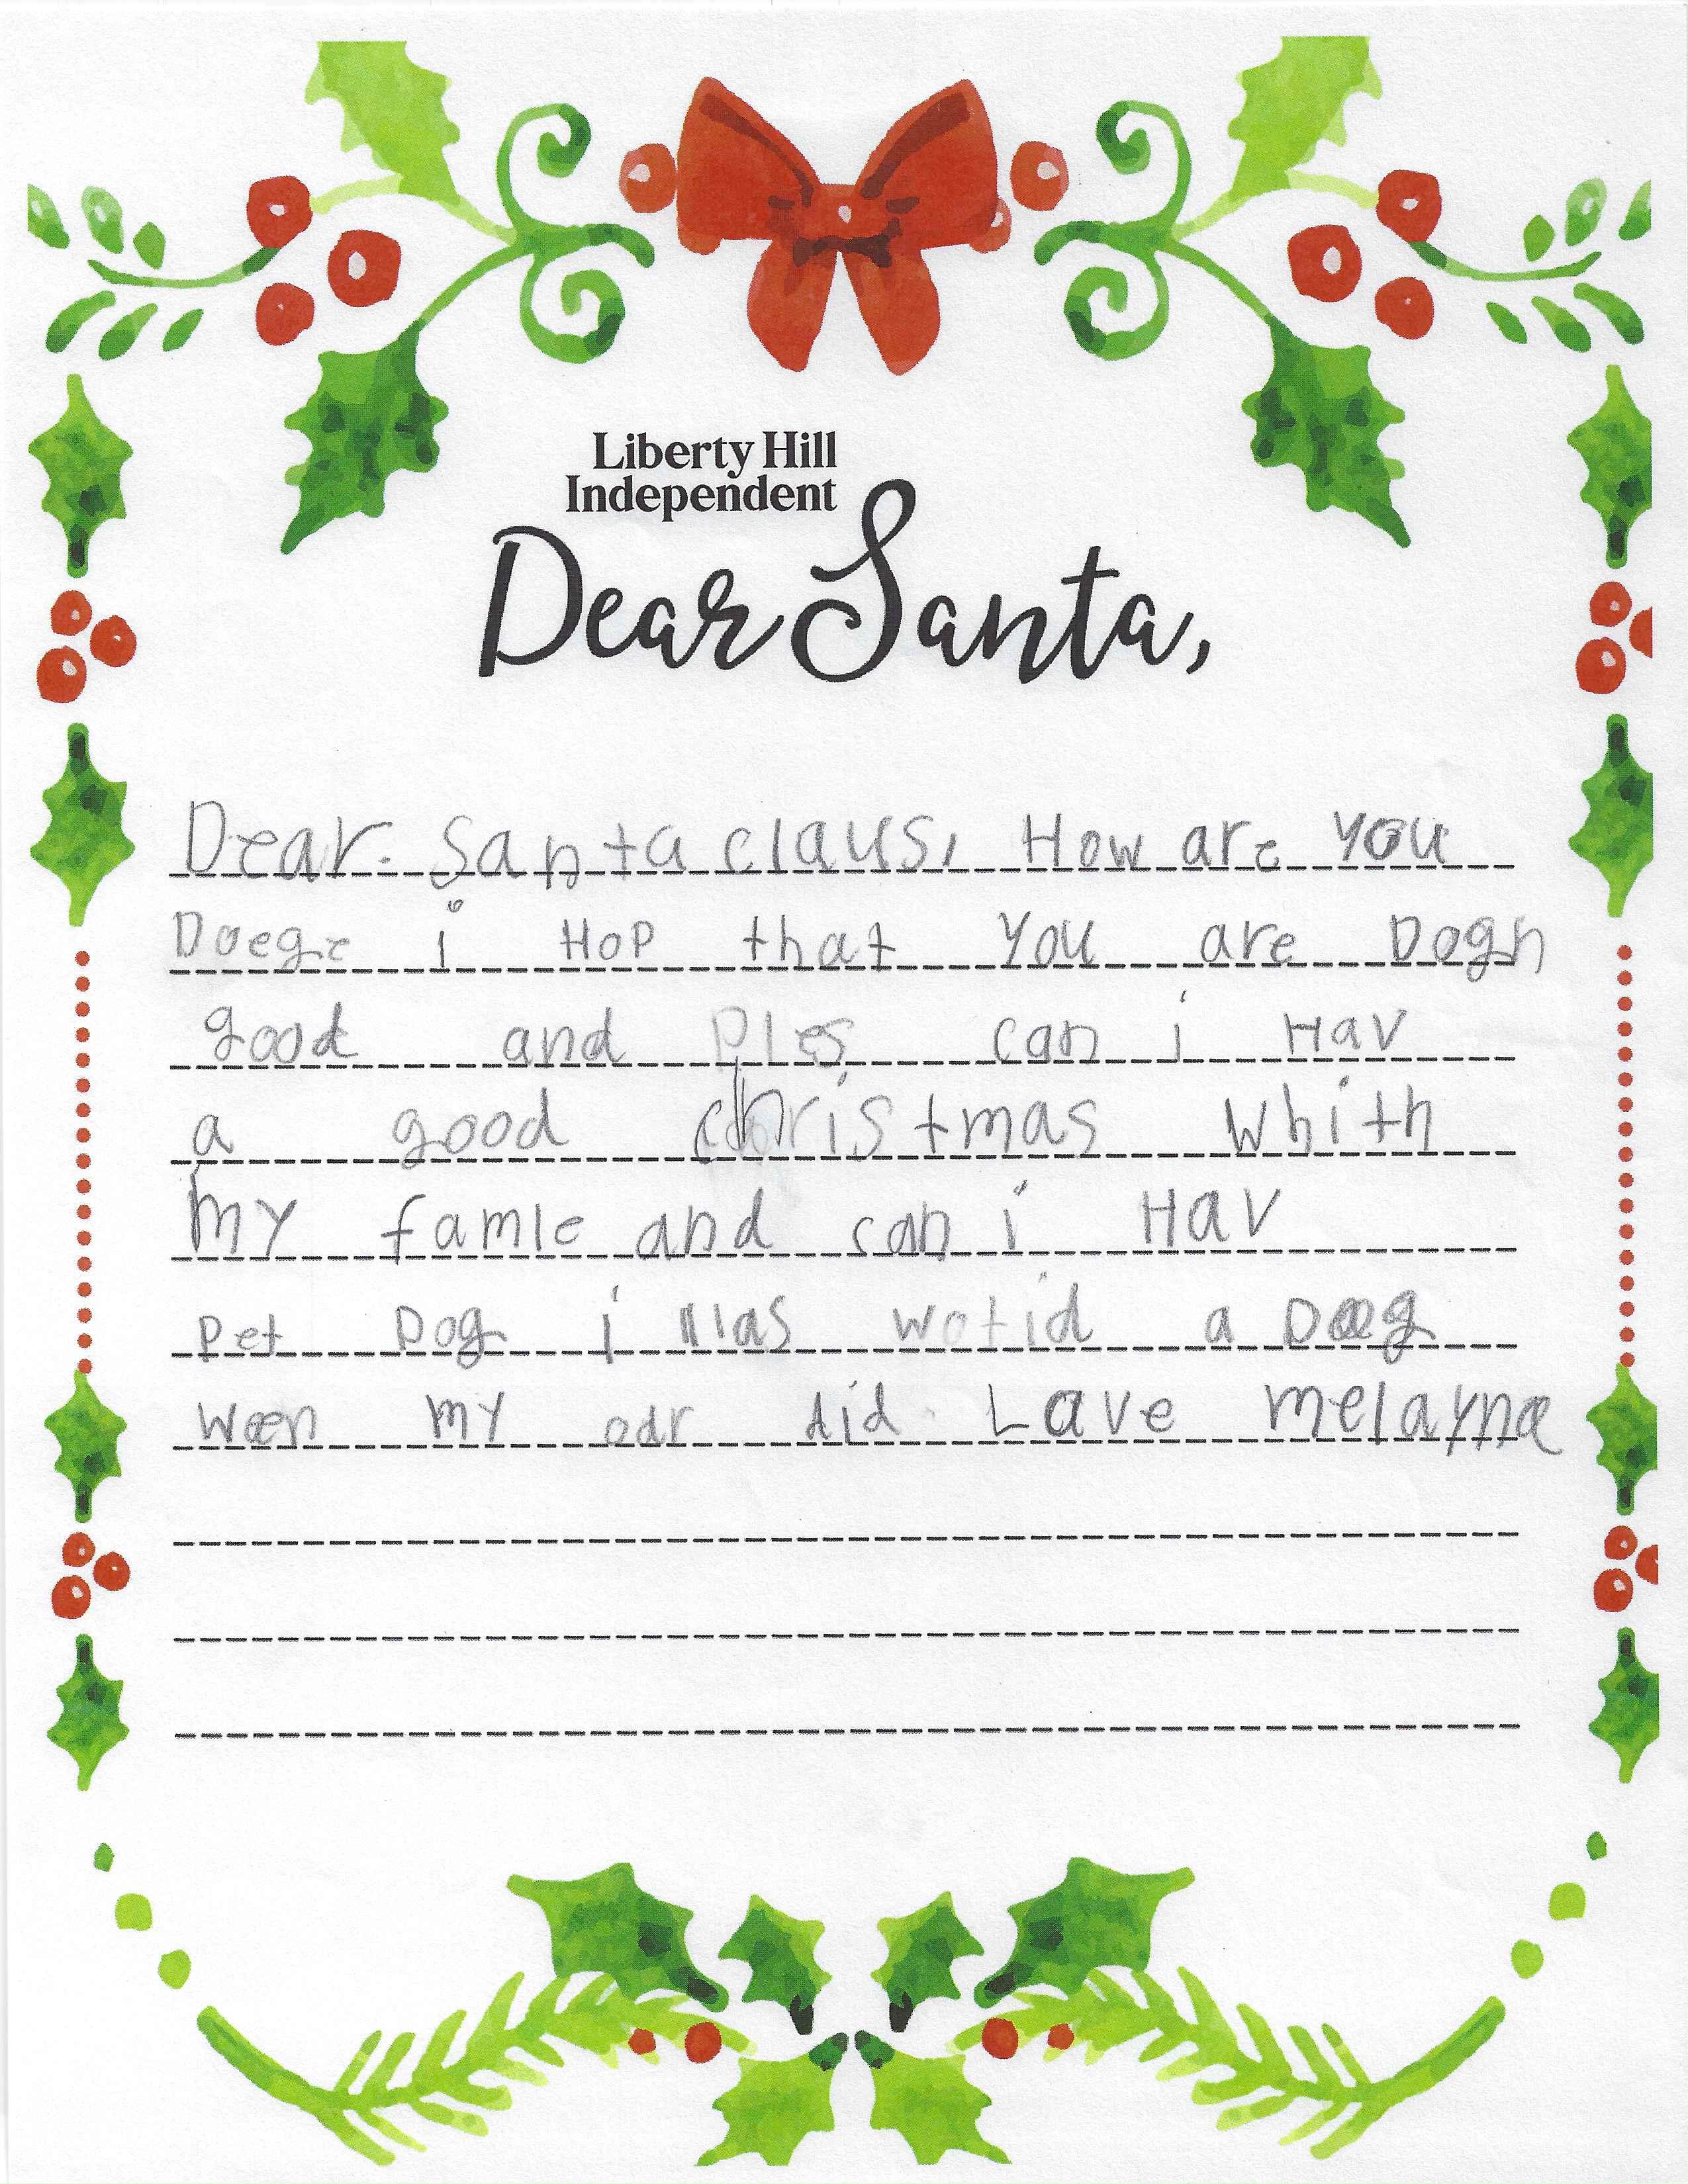 Liberty Hill
Independent
Dear Santa,
Dear. Santa claus, How are you
Doege i HoP that You are Dogn
good and Ples can i Hav
a good christmas whith
my famle and can i Hav
Pet Dog i wotid a Dog
Wen my odr did Lave melayna